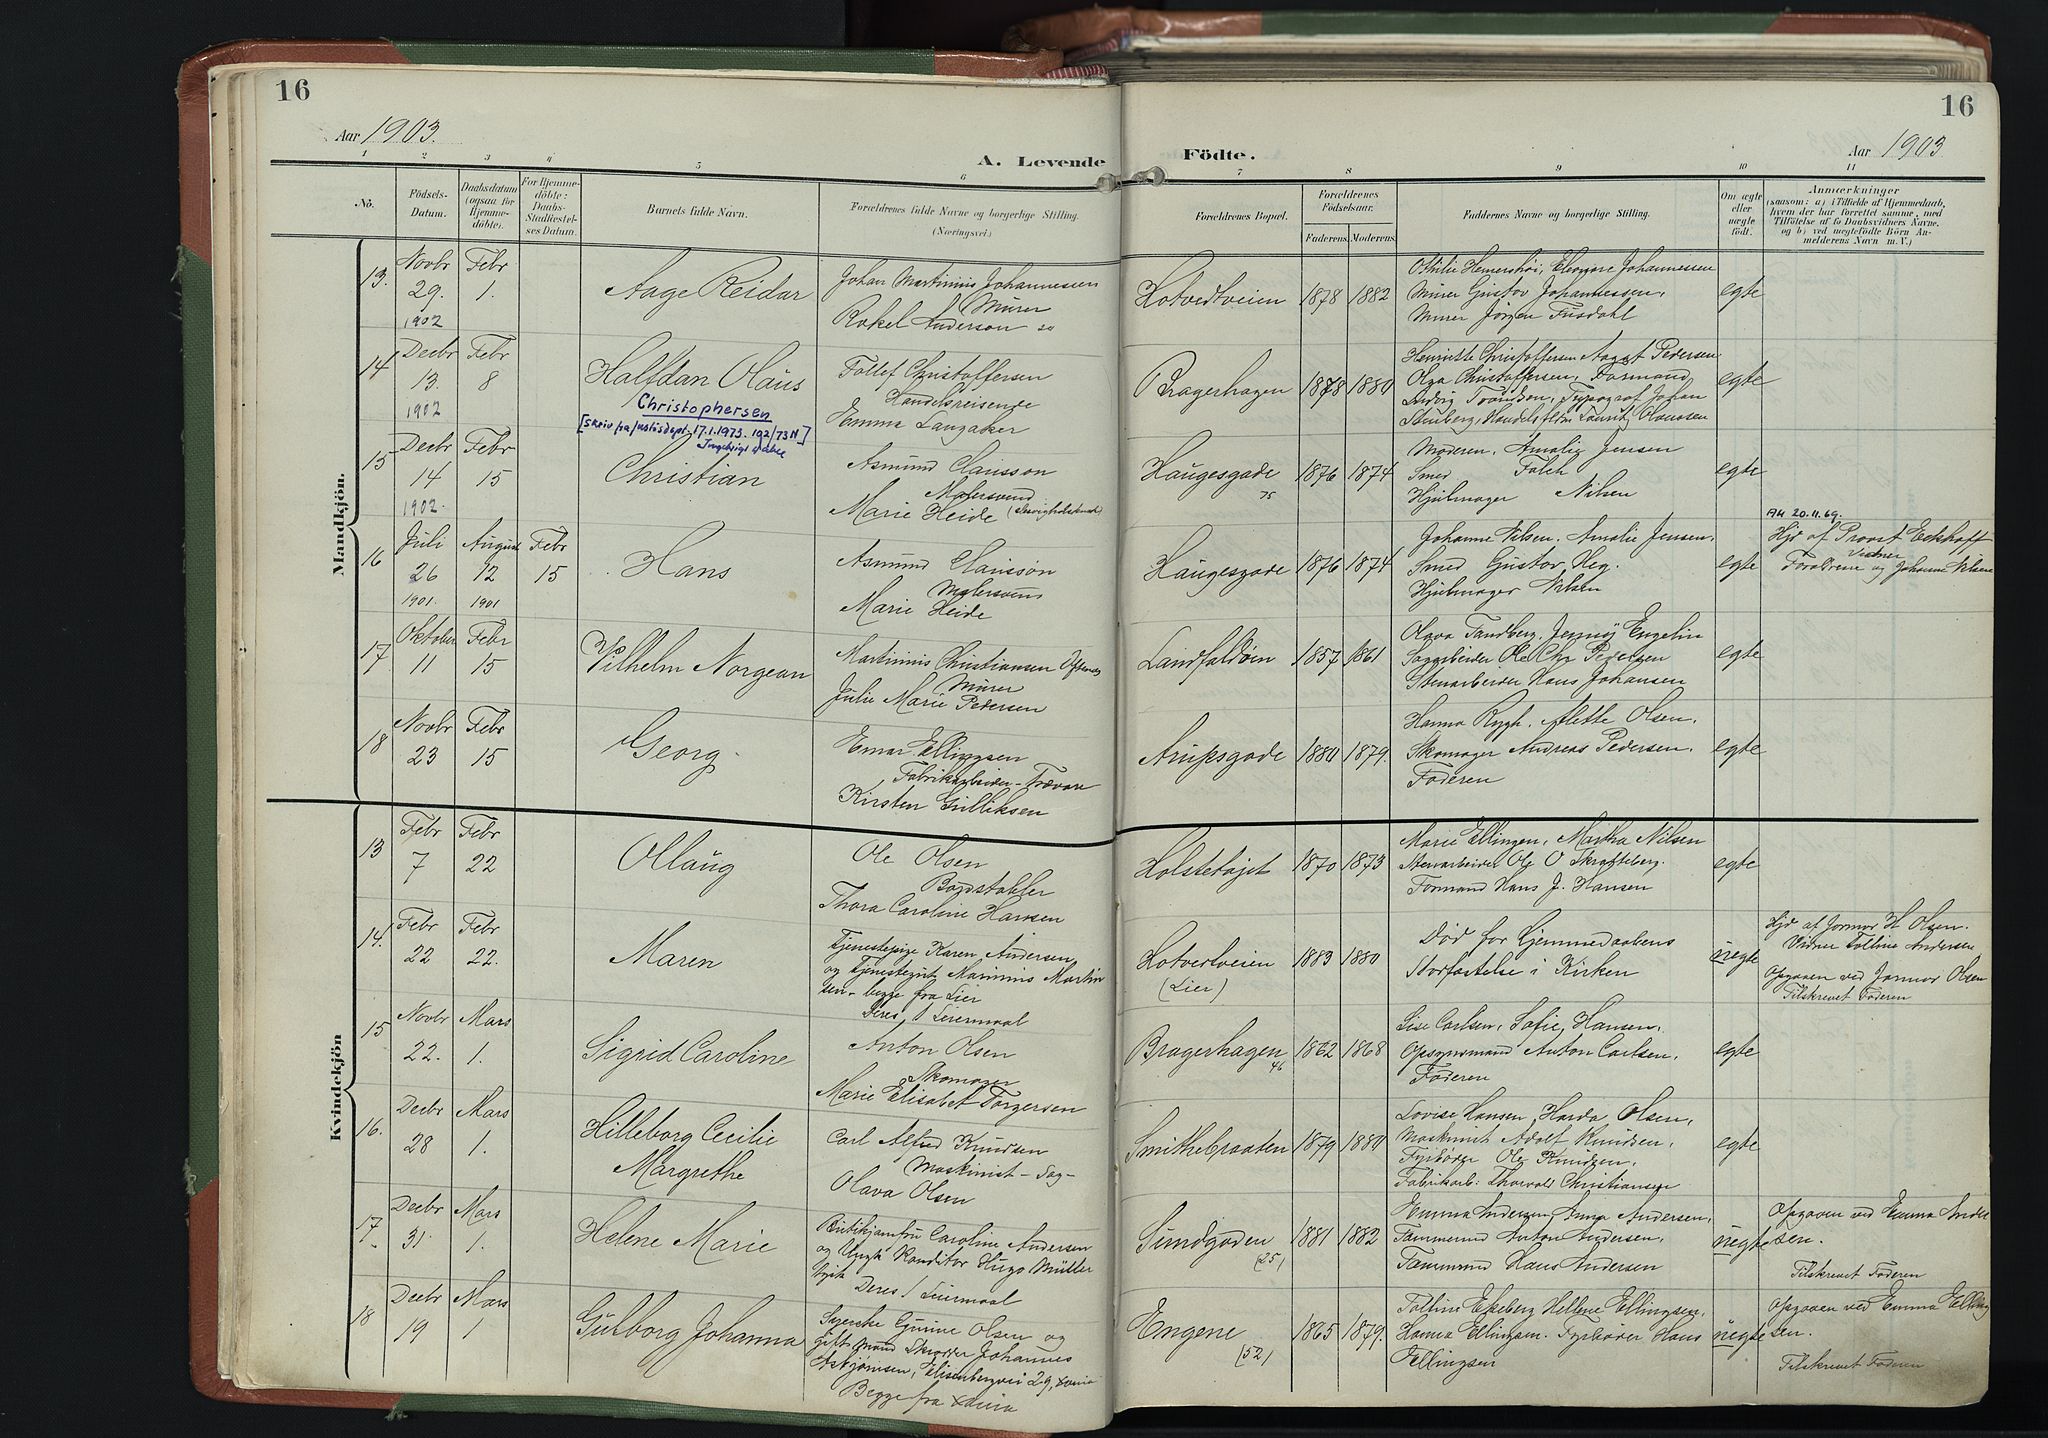 16
16
Aar 1903.
A. Levende Födte.
Aar 1903
1 2 3 4 5 6 7 8 9 10 11
No.
Födsels-Datum.
Daabsdatum (ogsaa for Hjemmedöbte).
For Hjemmedöbte: Daabs-Stadfæstelses Datum.
Barnets fulde Navn.
Forældrenes fulde Navne og borgerlige Stilling.
(Næringsvei.)
Forældrenes Bopæl.
Forældrenes Födselsaar.
Faderens. Moderens.
Faddernes Navne og borgerlige Stilling.
Om ægte eller uægte födt.
Anmærkninger
(saasom: a) i Tilfælde af Hjemmedaab,
hvem der har forrettet samme, med
Tilföielse af to Daabsvidners Navne.
og b) ved uegtefödte Börn Anmelderens Navn m. V.)
Mandkjön.
13. Novbr 29. 1902
Febr 1.
Aage Reidar
Johan Martinius Johannessen
Murer
Rakel Anderson
Hotvedtveien
1878 1882
Othilie Hemershöi, Eleonore Johannessen
Murer Gustav Johannessen,
Murer Jörgen Fusdahl
egte
14 Decbr 13. 1902
Febr 8
Halfdan Olaus
Christophersen
[skriv fra justisdept. 17.1.1973. 192/73 N]
Tollef Christoffersen
Handelsreisende
Emma Langaker
Bragerhagen
1878 1880
Henriette Christoffersen August Pedersen
Olga Christoffersen, Formand
Ludvig Trondsen, Typograf Johan
Stenberg, Handelsflm Laurit Olaussen
egte
15 Decbr 14 1902.
Febr 15
Christian
Asmund Clausson
Malersvend
Marie Heide
Haugesgade 75
1876 1874
Moderen, Amalie Jensen
Smed Falch
Hjulmager Nilsen
egte
16 Juli 26 1901.
August 12 1901
Febr 15
Hans
Asmund Clausson
Malersvend
Marie Heide
Haugesgade
1876 1874
Johanne Nilsen, Amalie Jensen,
Smed Gustav Heg.
Hjulmager Nilsen
egte
AH 20.11.69.
Hjd af Provst Eckhoff
Vidner
Forældrene og Johanne Nilsen
17 Oktober 11
Febr 15
Vilhelm Norgean
Martinius Christiansen
Murer
Julie Marie Pedersen
Landfaldöen
1857 1861
Olava Tandberg, Jenny Engelin
Sagarbeider Ole Chr Pedersen
Stenarbeider Hans Johansen
egte
18 Novbr 23
Febr 15
Georg
Einar Ellingsen
Fabrikarbeider - Trævare
Kirsten Gulliksen
Arupsgade
1880 1879.
Hanna Rygh. Alette Olsen.
Skomager Andreas Pedersen.
Faderen
egte
Kvindekjön
13 Febr 7
Febr 22
Ollaug
Ole Olsen
Bordstabler
Thora Caroline Hansen
Holstetöjet
1870 1873
Marie Ellingen, Martha Nilsen
Stenarbeider Ole O Skratteberg.
Formand Hans J. Hansen
egte
14. Febr 22
Febr 22.
Maren
Tjenestepige Karen Andersen
og Tjenestegut Marinius Martin
sen - begge fra Lier
Deres, 1 Leiermaal
Hotvedtveien
(Lier)
1883 1880
Död för Hjemmedaabens
Storfæstelse i Kirken
uegte
Hjd af Jormor H Olsen.
Vidner Tolline Andersen
Opgaven ved Jormor Olsen
Tilskrevet Faderen
15 Novbr 22.
Mars 1.
Sigrid Caroline
Anton Olsen
Skomager
Marie Elisabet Torgersen
Bragerhagen 46
1862 1868
Lise Carlsen, Sofie, Hansen.
Opsynsmand Anton Carlsen.
Faderen
egte
16. Decbr 28
Mars 1.
Hilleborg Cecilie
Margrethe
Carl Alfred Knudsen
Maskinist - Sag-
Olava Olsen
Smithebraaten
1879 1880
Lovise Hansen, Harda Olsen,
Maskinist Adolf Knudsen,
Fyrböder Ole Knudsen.
Fabrikarb: Thorvald Christiansen
egte
17. Decbr 31
Mars 1.
Helene Marie
Butikjomfru Caroline Andersen
og Ungk Konditor Hugo Müller
Deres 1 Leiermaal
Sundgaden
(25)
1881 1882
Emma Andersen, Anna Andersen,
Tømmermd Anton Andersen.
Tømmermd Hans Andersen
uegte
Opgaven ved Emma Ander
sen.
Tilskrevet Faderen
18 Decbr 19
Mars 1
Gulborg Johanna
Syerske Gunne Olsen og
Gift Mand Skrædder Johannes
Asbjörnsen, Elisenbergvei 29, Xania
Begge fra Xania
Engene
(52)
1865 1879.
Tolline Ekeberg Hellene Ellingsen,
Hanna Ellingsen. Fyrböder Hans
Ellingsen
uegte
Opgaven ved Emma Elling
sen.
Tilskrevet Faderen